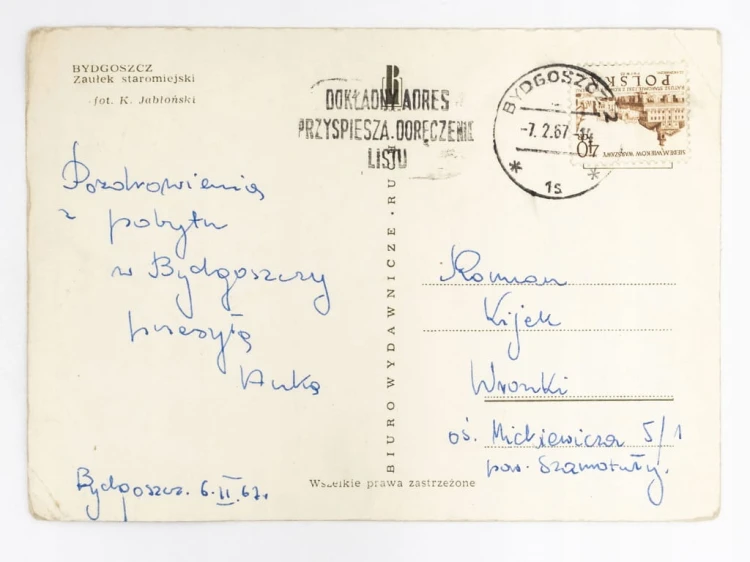 BYDGOSZCZ
Zaułek staromiejski
fot. K. Jabłoński
DOKŁADNY ADRES
PRZYSPIESZA DORĘCZENIE
LISTU
BYDGOSZCZ 2
-7. 2.67
1s
POLSKA
40
Pozdrowienia
z pobytu
w Bydgoszczy
przesyła
Anka
Bydgoszcz. 6.II.67.
BIURO WYDAWNICZE · RUCH
Wszelkie prawa zastrzeżone
Roman
Kijek
Wronki
oś. Mickiewicza 5/1
pow. Szamotuły.